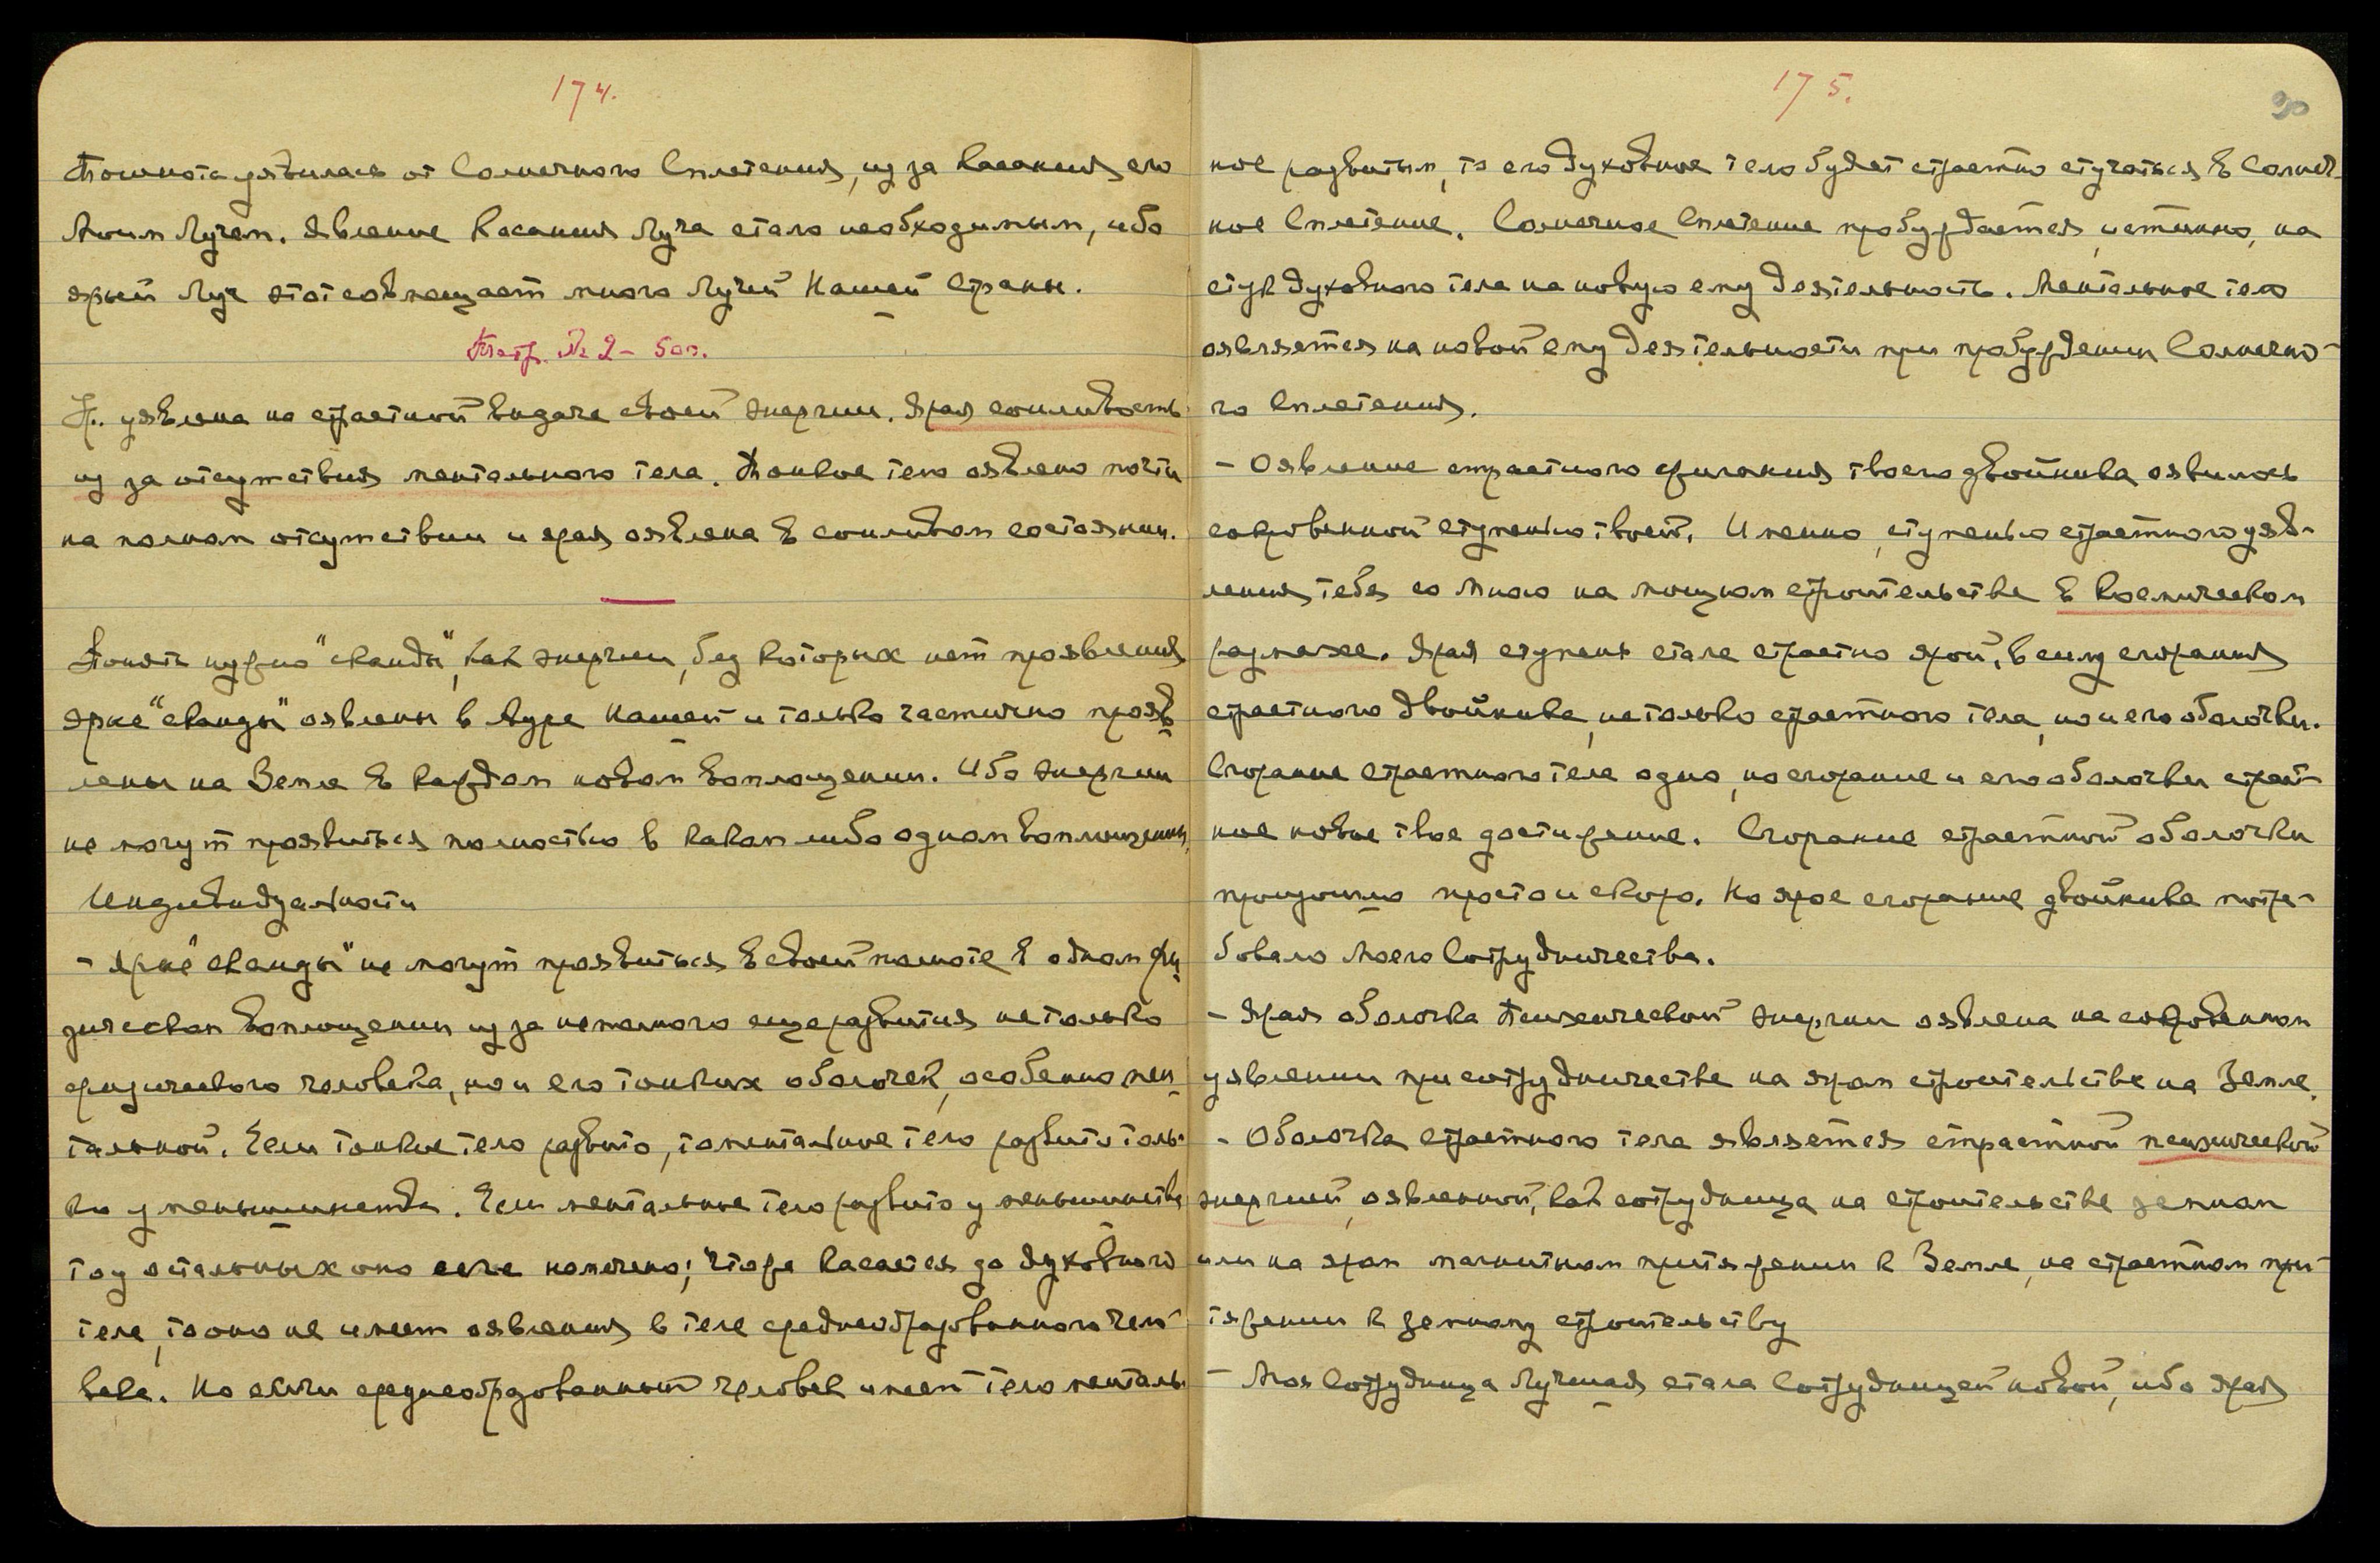 174.
Тошнота уявилась от Солнечного Сплетения, из за касания его
Моим Лучем. Явление касания Луча стало необходимым, ибо
ярый Луч этот совмещает много Лучей Нашей Страны.
Тетр. № 2 –
уявлена на страстной выдаче своей энергии. Ярая сонливость
из за отсутствия ментального тела. Тонкое тело оявлено почти
на полном отсутствии и ярая оявлена в сонливом состоянии.
Понять нужно "сканды", как энергии, без которых нет проявления
Ярые "сканды" оявлены в Ауре Нашей и только частично прояв
лены на Земле в каждом новом воплощении. Ибо энергии
не могут проявиться полностью в каком либо одном воплощении
Индивидуальности
– Ярые "сканды" не могут проявиться в своей полноте в одном фи
зическом воплощении из за неполного еще развития не только
физического человека, но и его тонких оболочек, особенно мен
тальной. Если тонкое тело развито, то ментальное тело развито толь-
ко у меньшинства. Если ментальное тело развито у меньшинства
то у остальных оно еле намечено; что же касается до духовного
тела, то оно не имеет оявления в теле среднеобразованного чело-
века. Но если среднеобразованный человек имеет тело менталь-
175.
30
ное развитым, то его духовное тело будет страстно стучаться в Солнеч-
ное Сплетение. Солнечное Сплетение пробуждается, истинно, на
стук духовного тела на новую ему деятельность. Ментальное тело
оявляется на новой ему деятельности при пробуждении Солнечно-
го Сплетения.
– Оявление страстного сгорания твоего двойника оявилось
сокровенной ступенью твоей. Именно, ступенью страстного уяв-
ления тебя со Мною на мощном строительстве в космическом
размахе. Ярая ступень стала страстно ярой, в силу сгорания
страстного двойника, не только страстного тела, но и его оболочки.
Сгорание страстного тела одно, но сгорание и его оболочки страст-
ное новое твое достижение. Сгорание страстной оболочки
произошло просто и скоро. Но ярое сгорание двойника потре-
бовало Моего Сотрудничества.
– Ярая оболочка Психической энергии оявлена на сокровенном
уявлении при сотрудничестве на яром строительстве на Земле.
– Оболочка страстного тела является страстной психической
энергией, оявленной, как сотрудница на строительстве земном
или на яром магнитном притяжении к Земле, на страстном при-
тяжении к земному строительству
– Моя Сотрудница Лучшая стала Сотрудницей новой, ибо ярая